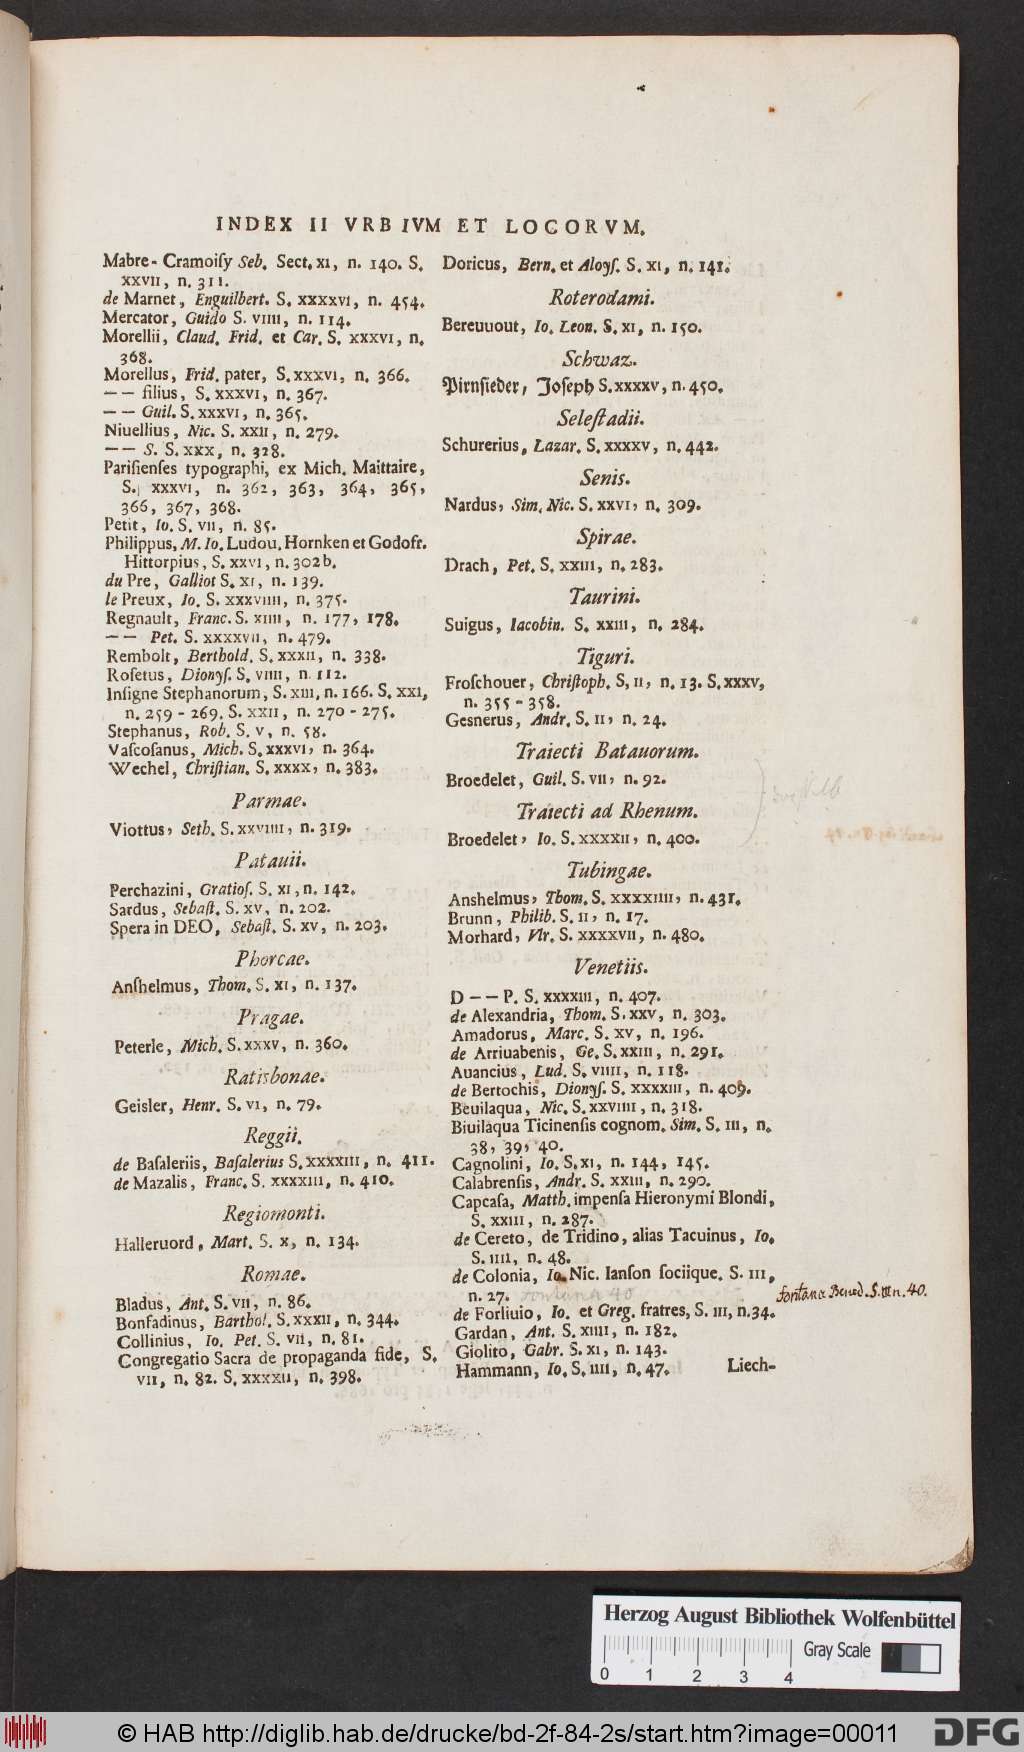 INDEX II VRBIVM ET LOCORVM.
Mabre-Cramoiſy Seb. Sect. XI, n. 140. S.
XXVII, n. 311.
de Marnet, Enguilbert. S. XXXXVI, n. 454.
Mercator, Guido S. VIIII, n. 114.
Morellii, Claud. Frid. et Car. S. XXXVI, n.
368.
Morellus, Frid. pater, S. XXXVI, n. 366.
—— filius, S. XXXVI, n. 367.
—— Guil. S. XXXVI, n. 365.
Niuellius, Nic. S. XXII, n. 279.
—— S. S. XXX, n. 328.
Pariſienſes typographi, ex Mich. Maittaire,
S. XXXVI, n. 362, 363, 364, 365,
366, 367, 368.
Petit, Io. S. VII, n. 85.
Philippus, M. Io. Ludou. Hornken et Godofr.
Hittorpius, S. XXVI, n. 302b.
du Pre, Galliot S. XI, n. 139.
le Preux, Io. S. XXXVIIII, n. 375.
Regnault, Franc. S. XIIII, n. 177, 178.
—— Pet. S. XXXXVII, n. 479.
Rembolt, Berthold. S. XXXII, n. 338.
Roſetus, Dionyſ. S. VIIII, n. 112.
Inſigne Stephanorum, S. XIII, n. 166. S. XXI,
n. 259-269. S. XXII, n. 270-275.
Stephanus, Rob. S. V, n. 58.
Vaſcoſanus, Mich. S. XXXVI, n. 364.
Wechel, Chriſtian. S. XXXX, n. 383.
Parmae.
Viottus, Seth. S. XXVIIII, n. 319.
Patauii.
Perchazini, Gratioſ. S. XI, n. 142.
Sardus, Sebaſt. S. XV, n. 202.
Spera in DEO, Sebaſt. S. XV, n. 203.
Phorcae.
Anſhelmus, Thom. S. XI, n. 137.
Pragae.
Peterle, Mich. S. XXXV, n. 360.
Ratisbonae.
Geisler, Henr. S. VI, n. 79.
Reggii.
de Baſaleriis, Baſalerius S. XXXXIII, n. 411.
de Mazalis, Franc. S. XXXXIII, n. 410.
Regiomonti.
Halleruord, Mart. S. X, n. 134.
Romae.
Bladus, Ant. S. VII, n. 86.
Bonfadinus, Barthol. S. XXXII, n. 344.
Collinius, Io. Pet. S. VII, n. 81.
Congregatio Sacra de propaganda fide, S.
VII, n. 82. S. XXXXII, n. 398.
Doricus, Bern. et Aloyſ. S. XI, n. 141.
Roterodami.
Bereuuout, Io. Leon. S. XI, n. 150.
Schwaz.
Pirnſieder, Joſeph S. XXXXV, n. 450.
Seleſtadii.
Schurerius, Lazar. S. XXXXV, n. 442.
Senis.
Nardus, Sim. Nic. S. XXVI, n. 309.
Spirae.
Drach, Pet. S. XXIII, n. 283.
Taurini.
Suigus, Iacobin. S. XXIII, n. 284.
Tiguri.
Froſchouer, Chriſtoph. S, II, n. 13. S. XXXV,
n. 355-358.
Gesnerus, Andr. S. II, n. 24.
Traiecti Batauorum.
Broedelet, Guil. S. VII, n. 92.
Traiecti ad Rhenum.
Broedelet, Io. S. XXXXII, n. 400.
Tubingae.
Anshelmus, Thom. S. XXXXIIII, n. 431.
Brunn, Philib. S. II, n. 17.
Morhard, Vlr. S. XXXXVII, n. 480.
Venetiis.
D —— P. S. XXXXIII, n. 407.
de Alexandria, Thom. S. XXV, n. 303.
Amadorus, Marc. S. XV, n. 196.
de Arriuabenis, Ge. S. XXIII, n. 291.
Auancius, Lud. S. VIIII, n. 118.
de Bertochis, Dionyſ. S. XXXXIII, n. 409.
Beuilaqua, Nic. S. XXVIIII, n. 318.
Biuilaqua Ticinenſis cognom. Sim. S. III, n.
38, 39, 40.
Cagnolini, Io. S. XI, n. 144, 145.
Calabrenſis, Andr. S. XXIII, n. 290.
Capcaſa, Matth. impenſa Hieronymi Blondi,
S. XXIII, n. 287.
de Cereto, de Tridino, alias Tacuinus, Io.
S. IIII, n. 48.
de Colonia, Io. Nic. Ianſon ſociique. S. III,
n. 27. fontana 40
fontana Bened. S. III n. 40.
de Forliuio, Io. et Greg. fratres, S. III, n. 34.
Gardan, Ant. S. XIIII, n. 182.
Giolito, Gabr. S. XI, n. 143.
Hammann, Io. S. IIII, n. 47.
Liech-
Herzog August Bibliothek Wolfenbüttel
Gray Scale
0 1 2 3 4
© HAB http://diglib.hab.de/drucke/bd-2f-84-2s/start.htm?image=00011
DFG